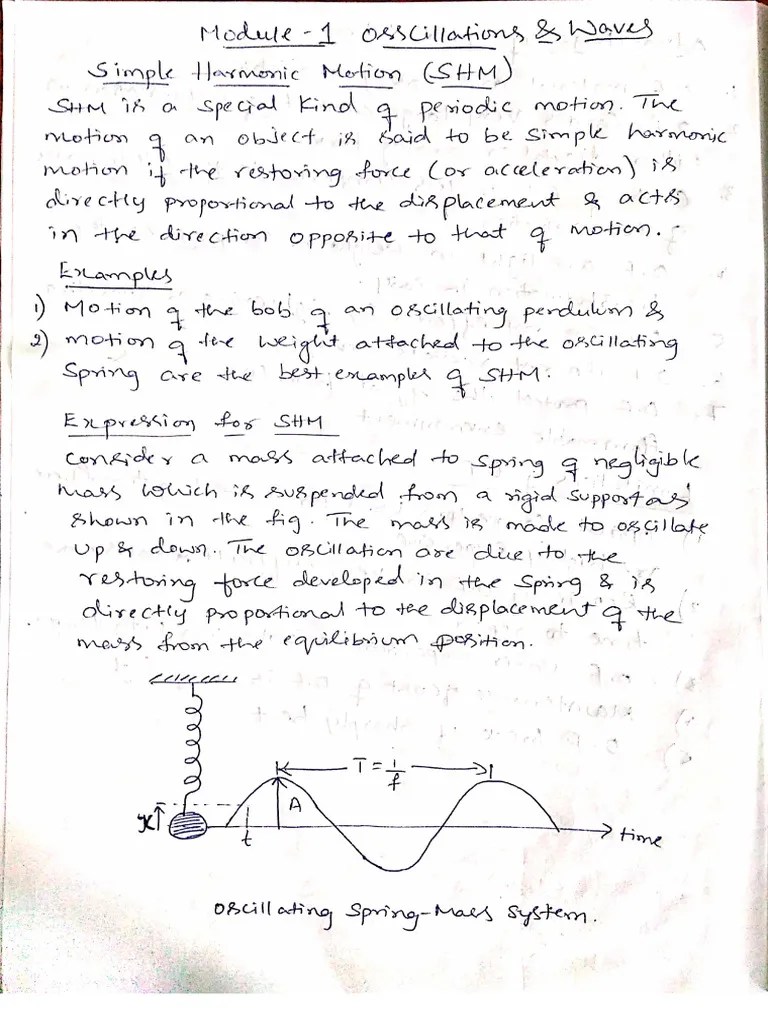 Module-1 Osscillations & Waves
Simple Harmonic Motion (SHM)
SHM is a special kind of periodic motion. The
motion of an object is said to be simple harmonic
motion if the restoring force (or acceleration) is
directly proportional to the displacement & acts
in the direction opposite to that of motion.
Examples
1) Motion of the bob of an oscillating pendulum &
2) motion of the weight attached to the oscillating
Spring are the best examples of SHM.
Expression for SHM
Consider a mass attached to spring of negligible
mass which is suspended from a rigid support as
shown in the fig. The mass is made to oscillate
up & down. The oscillation are due to the
restoring force developed in the spring & is
directly proportional to the displacement of the
mass from the equilibrium position.
T = 1/f
A
x
t
time
Oscillating Spring-Mass System.